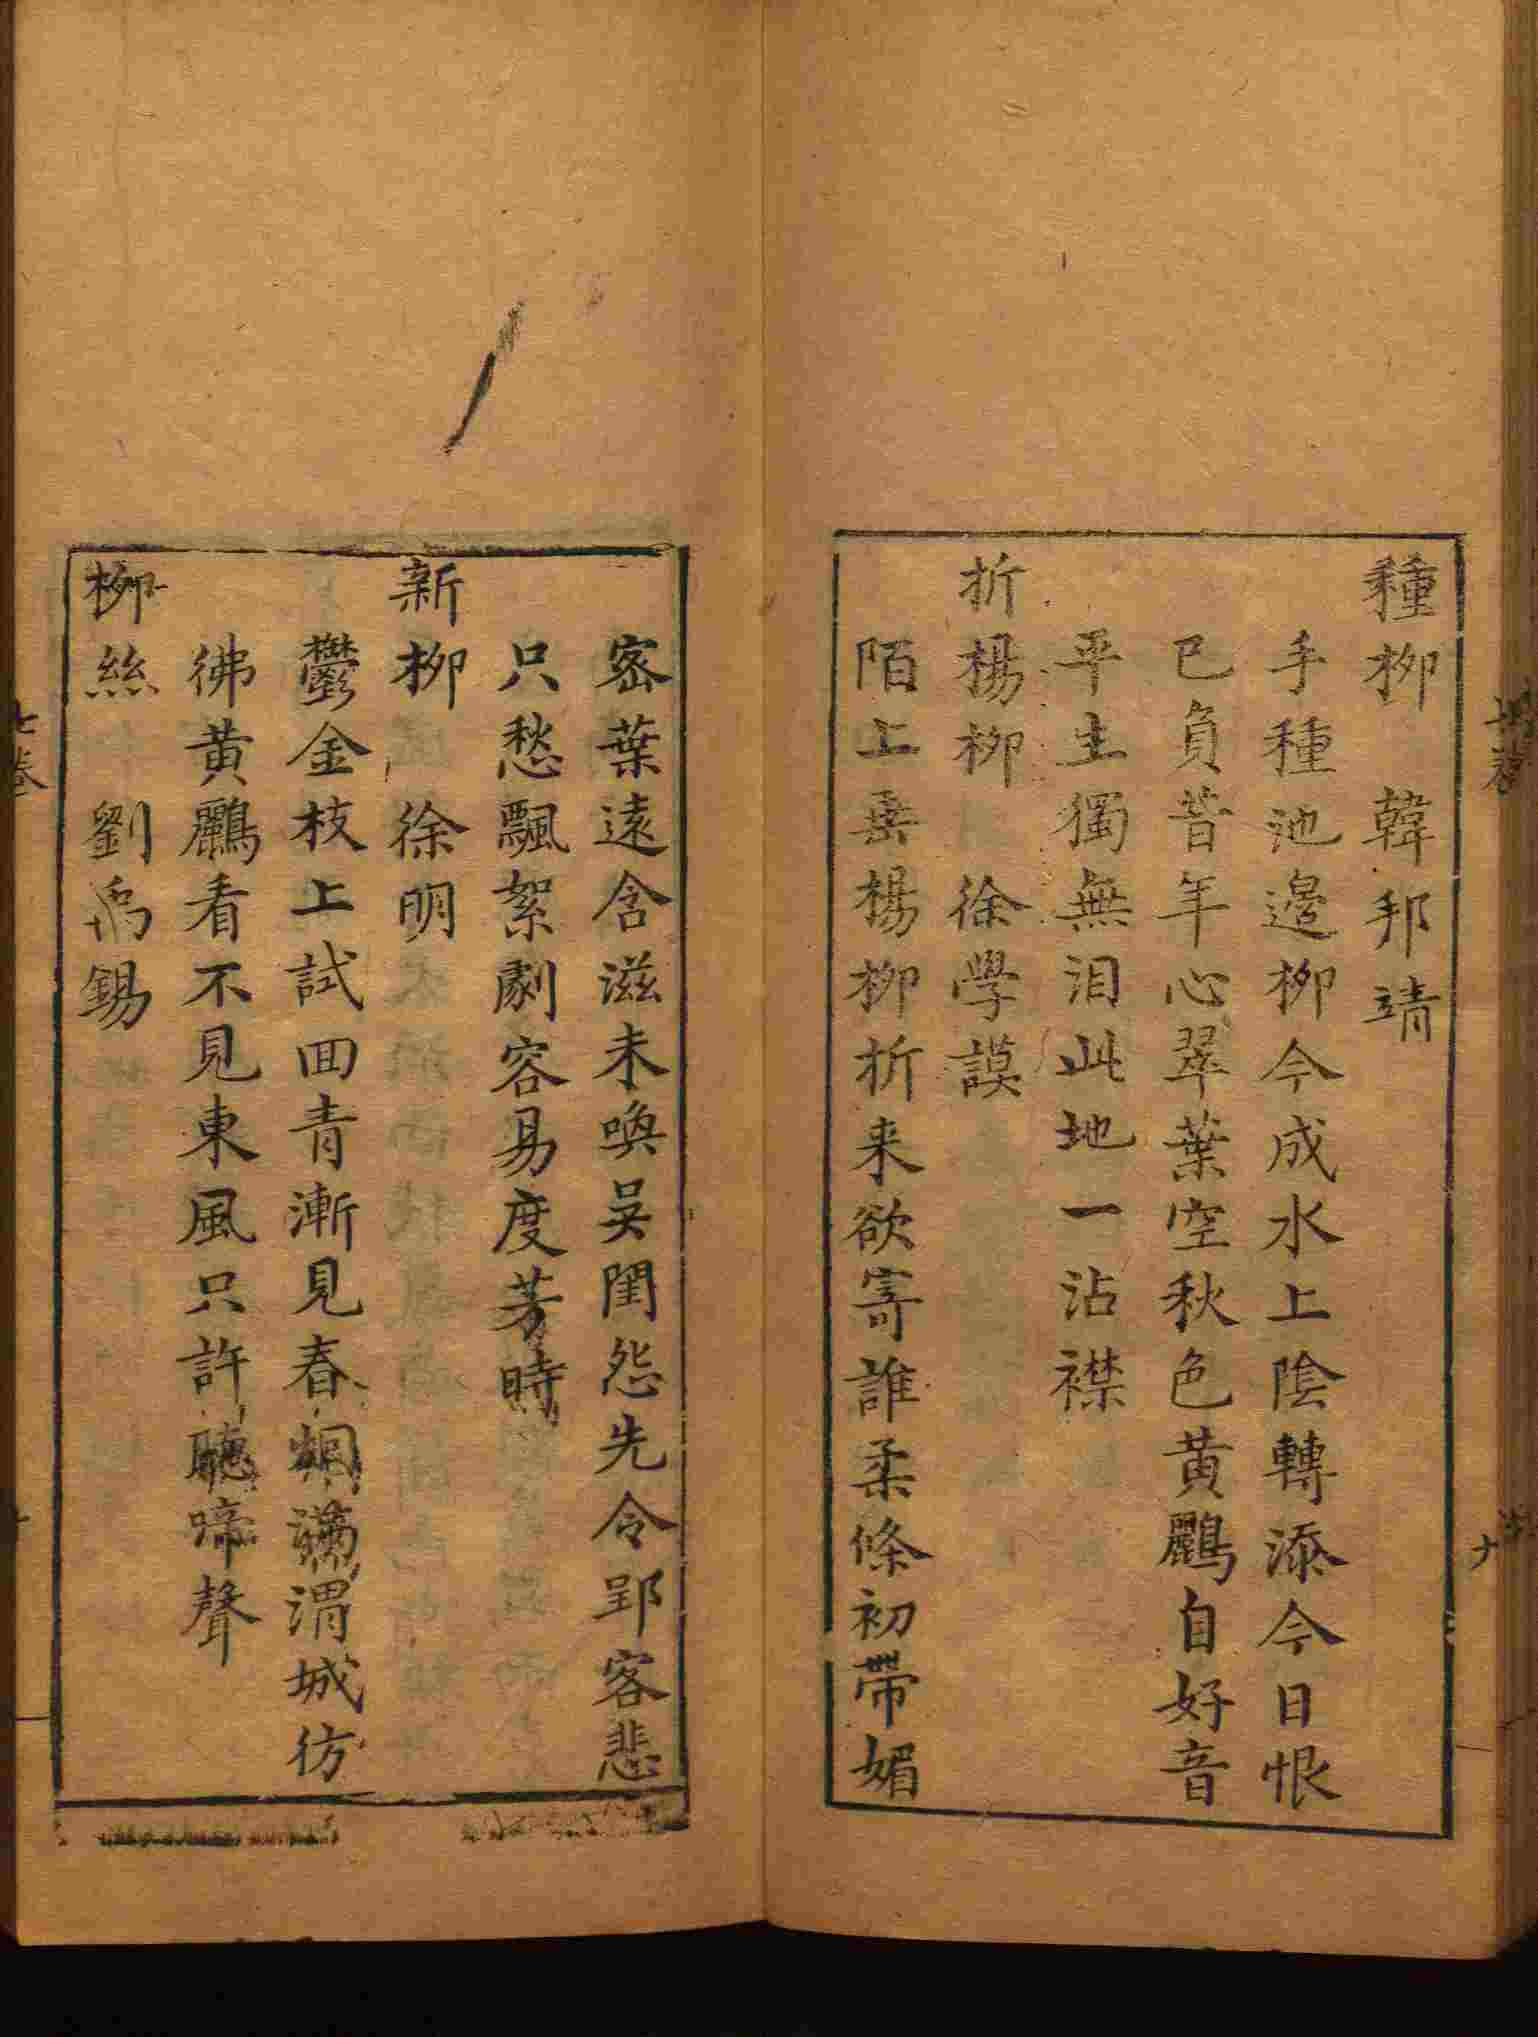 種柳　韓邦靖
手種池邊柳今成水上陰轉添今日恨
已負昔年心翠葉空秋色黃鸝自好音
平生獨無泪此地一沾襟
折楊柳　徐學謨
陌上垂楊柳折来欲寄誰柔條初帶媚
宻葉遠含滋未喚吳閨怨先令郢客悲
只愁飄絮劇容易度芳時
新柳　徐明
鬱金枝上試回青漸見春烟滿渭城彷
彿黃鸝看不見東風只許聽啼聲
柳絲　劉禹錫
七卷
十